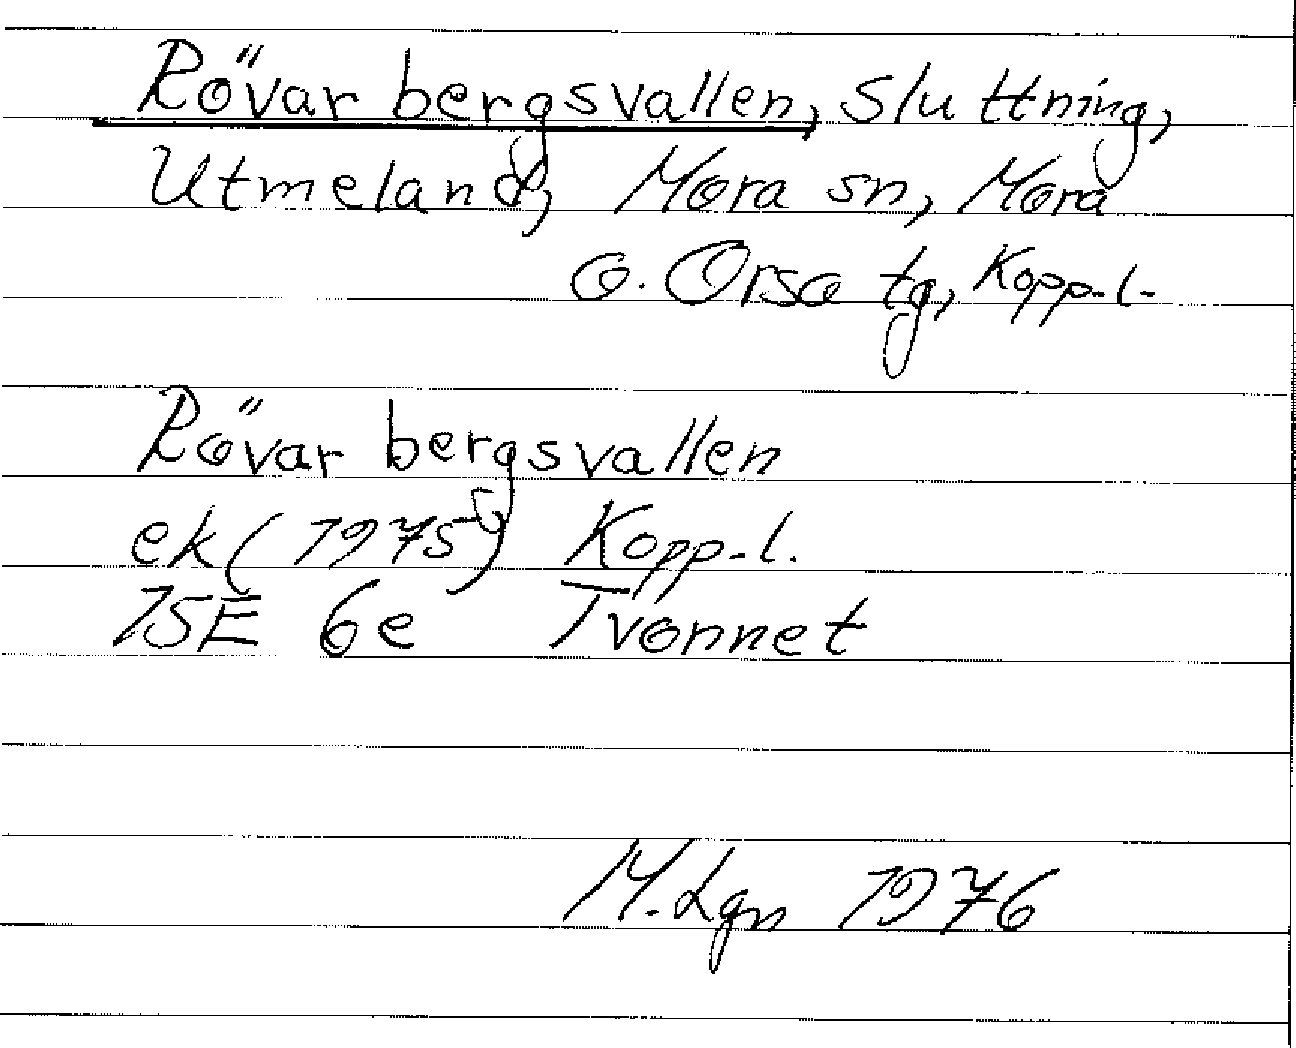 Rövarbergsvallen, sluttning,
Utmeland, Mora sn, Mora
o. Orsa tg, Kopp. l.
Rövarbergsvallen
ek (1975) Kopp. l.
15E 6e Tvonnet
M. Lgn 1976